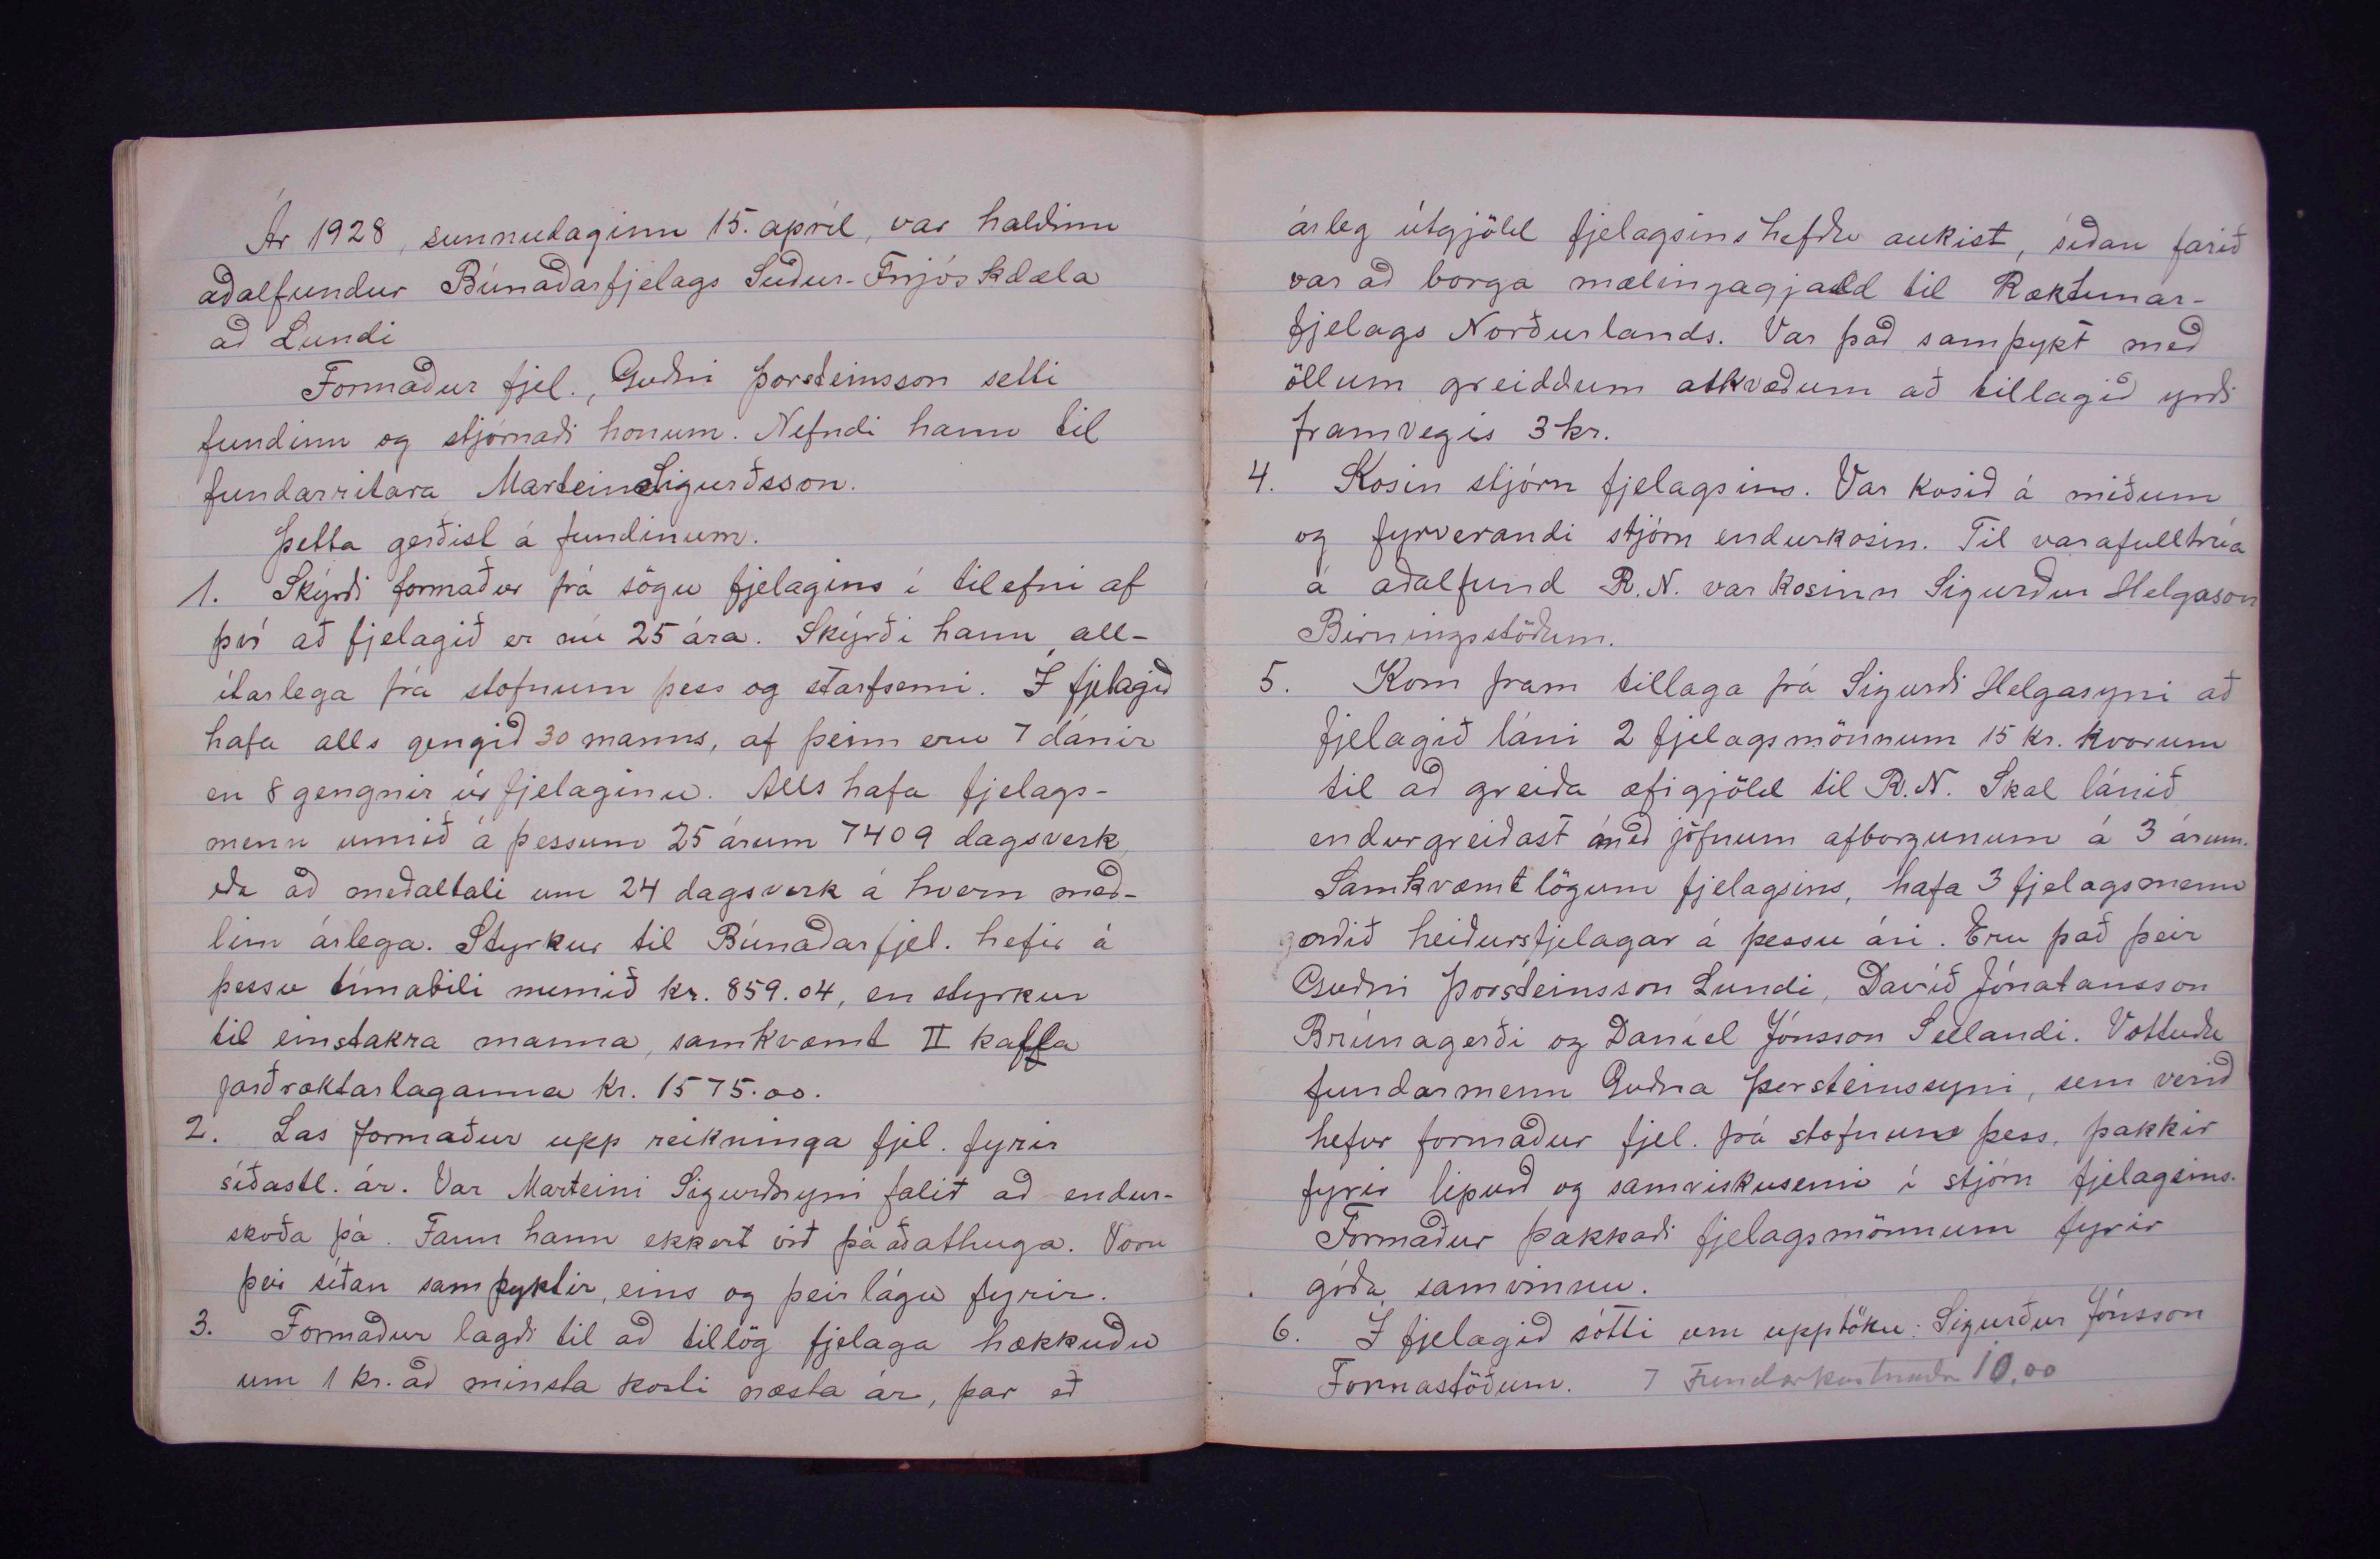 Ár 1928, sunnudaginn 15. apríl, var haldinn
aðalfundur Búnaðarfjelags Suður-Fnjóskdæla
að Lundi
Formaður fjel., Guðni Þorsteinsson setti
fundinn og stjórnaði honum. Nefndi hann til
fundarritara Martein Sigurðsson.
Þetta gerðist á fundinum.
1. Skýrði formaður frá sögu fjelagins í tilefni af
því að fjelagið er nú 25 ára. Skýrði hann all-
ítarlega frá stofnum þess og starfsemi. Í fjelagið
hafa alls gengið 30 manns, af þeim eru 7 dánir
en 8 gengnir úr fjelaginu. Alls hafa fjelags-
menn unnið á þessum 25 árum 7409 dagsverk,
eða að meðaltali um 24 dagsverk á hvern með-
lim árlega. Styrkur til Búnaðarfjel. hefir á
þessu tímabili numið kr. 859.04, en styrkur
til einstakra manna, samkvæmt II kafla
jarðræktarlaganna kr. 1575.00.
2. Las formaður upp reikninga fjel. fyrir
síðastl. ár. Var Marteini Sigurðsyni falið að endur-
skoða þá. Fann hann ekkert við þá að athuga. Voru
þeir síðan samþyktir, eins og þeir lágu fyrir.
3. Formaður lagði til að tillög fjelaga hækkuðu
um 1 kr. að minsta kosti næsta ár, þar eð
árleg útgjöld fjelagsins hefðu aukist, síðan farið
var að borga mælingagjald til Ræktunar-
fjelags Norðurlands. Var það samþykt með
öllum greiddum atkvæðum að tillagið yrði
framvegis 3 kr.
4. Kosin stjórn fjelagsins. Var kosið á miðum
og fyrverandi stjórn endurkosin. Til varafulltrúa
á aðalfund R.N. var kosinn Sigurður Helgason
Birningsstöðum.
5. Kom fram tillaga frá Sigurði Helgasyni að
fjelagið láni 2 fjelagsmönnum 15 kr. hvorum
til að greiða æfigjöld til R.N. Skal lánið
endurgreiðast með jöfnum afborgunum á 3 árum.
Samkvæmt lögum fjelagsins, hafa 3 fjelagsmenn
orðið heiðursfjelagar á þessu ári. Eru það þeir
Guðni Þorsteinsson Lundi, Davíð Jónatansson
Brúnagerði og Daníel Jónsson Selandi. Vottuðu
fundarmenn Guðna Þorsteinssyni, sem verið
hefur formaður fjel. frá stofnun þess, þakkir
fyrir lipurð og samviskusemi í stjórn fjelagsins.
Formaður þakkaði fjelagsmönnum fyrir
góða samvinnu.
6. Í fjelagið sótti um upptöku: Sigurður Jónsson
Fornastöðum. 7 Fundarkostnaður 10,00